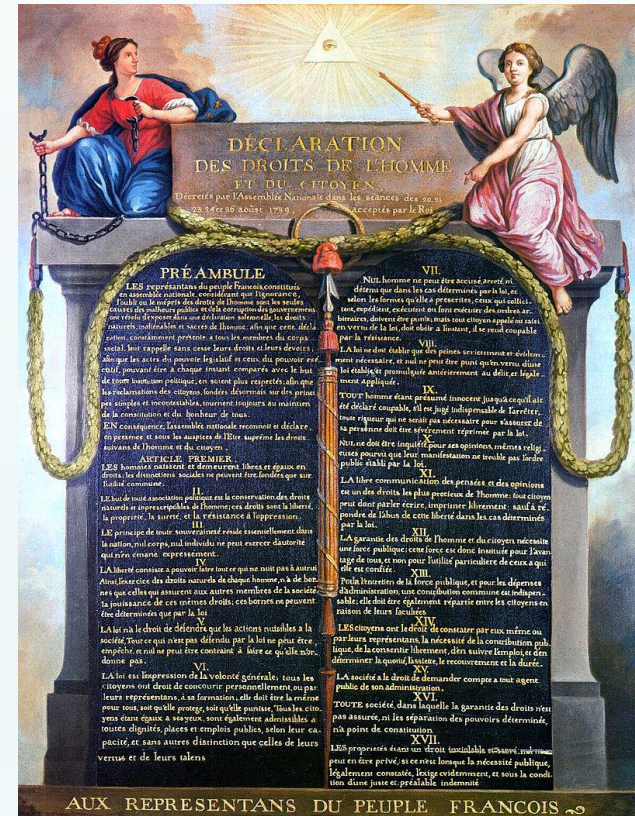 DÉCLARATION
DES DROITS DE L'HOMME
ET DU CITOYEN,
Décretés par l'Assemblée Nationale dans les séances des 20, 21
23, 24 et 26 août 1789, acceptés par le Roi
PRÉAMBULE
LES représentans du peuple François, constitués
en assemblée nationale, considérant que l'ignorance,
l'oubli ou le mépris des droits de l'homme sont les seules
causes des malheurs publics et de la corruption des gouvernemens
ont résolu d'exposer dans une déclaration solemnelle, les droits
naturels, inaliénables et sacrés de l'homme; afin que cette décla
ration, constamment présente a tous les membres du corps
social, leur rappelle sans cesse leurs droits et leurs devoirs;
afin que les actes du pouvoir législatif et ceux du pouvoir exé
cutif, pouvant être à chaque instant comparés avec le but
de toute institution politique, en soient plus respectés; afin que
les réclamations des citoyens, fondées désormais sur des princi
pes simples et incontestables, tournent toujours au maintien
de la constitution et du bonheur de tous.
EN conséquence, l'assemblée nationale reconnoît et déclare,
en presence et sous les auspices de l'Etre suprême les droits
suivans de l'homme et du citoyen.
ARTICLE PREMIER.
LES hommes naissent et demeurent libres et égaux en
droits; les distinctions sociales ne peuvent être fondées que sur
l'utilité commune.
II.
LE but de toute association politique est la conservation des droits
naturels et inprescriptibles de l'homme; ces droits sont la liberté,
la proprieté, la sureté, et la résistance à l'oppression.
III.
LE principe de toute souveraineté réside essentiellement dans
la nation, nul corps, nul individu ne peut exercer d'autorité
qui n'en émane expressément.
IV.
LA liberté consiste a pouvoir faire tout ce qui ne nuit pas à autrui
Ainsi, l'exercice des droits naturels de chaque homme, n'a de bor
nes que celles qui assurent aux autres membres de la société
la jouissance de ces mêmes droits; ces bornes ne peuvent
être déterminées que par la loi
V.
LA loi n'a le droit de défendre que les actions nuisibles à la
société. Tout ce qui n'est pas défendu par la loi ne peut être
empêché, et nul ne peut être contraint à faire ce qu'elle n'or-
donne pas.
VI.
LA loi est l'expression de la volonté générale; tous les
citoyens ont droit de concourir personnellement, ou par
leurs représentans, à sa formation; elle doit être la même
pour tous, soit qu'elle protege, soit qu'elle punisse. Tous les cito-
yens étant égaux à ses yeux, sont également admissibles a
toutes dignités, places et emplois publics, selon leur ca-
pacité, et sans autres distinction que celles de leurs
vertus et de leurs talens
VII.
NUL homme ne peut être accusé, arreté, ni
détenu que dans les cas déterminés par la loi, et
selon les formes qu'elle a prescrites, ceux qui sollici-
tent, expédient, exécutent ou font exécuter des ordres ar-
bitraires, doivent être punis; mais tout citoyen appelé ou saisi
en vertu de la loi, doit obéir a l'instant, il se rend coupable
par la résistance.
VIII.
LA loi ne doit établir que des peines strictement et évidem-
ment nécessaire, et nul ne peut être puni qu'en vertu d'une
loi établie et promulguée antérierement au délit, et légale-
ment appliquée.
IX.
TOUT homme étant présumé innocent jusqu'a ce qu'il ait
été déclaré coupable, s'il est jugé indispensable de l'arrêter,
toute rigueur qui ne serait pas nécessaire pour s'assurer de
sa personne doit être sévèrement réprimée par la loi.
X.
NUL ne doit être inquiété pour ses opinions, mêmes religi-
euses pourvu que leur manifestation ne trouble pas l'ordre
public établi par la loi.
XI.
LA libre communication des pensées et des opinions
est un des droits les plus precieux de l'homme; tout citoyen
peut donc parler écrire, imprimer librement: sauf à ré-
pondre de l'abus de cette liberté dans les cas déterminés
par la loi.
XII.
LA garantie des droits de l'homme et du citoyen nécessite
une force publique; cette force est donc instituée pour l'avan
tage de tous, et non pour l'utilité particuliere de ceux a qui
elle est confiée.
XIII.
Pour l'entretien de la force publique, et pour les dépenses
d'administration, une contribution commune est indispen-
sable; elle doit être également répartie entre les citoyens en
raison de leurs facultées
XIV.
LES citoyens ont le droit de constater par eux même ou
par leurs représentans, la nécessité de la contribution pub-
lique, de la consentir librement, d'en suivre l'emploi, et d'en
déterminer la quotité, l'assiette, le recouvrement et la durée.
XV.
LA société a le droit de demander compte a tout agent
public de son administration.
XVI.
TOUTE société, dans laquelle la garantie des droits n'est
pas assurée, ni les séparation des pouvoirs déterminée,
n'a point de constitution
XVII.
LES proprietés étant un droit inviolable et sacré, nul ne
peut en être privé, si ce n'est lorsque la nécessité publique,
légalement constatée, l'exige evidemment, et sous la condi-
tion d'une juste et préalable indemnité
AUX REPRESENTANS DU PEUPLE FRANCOIS